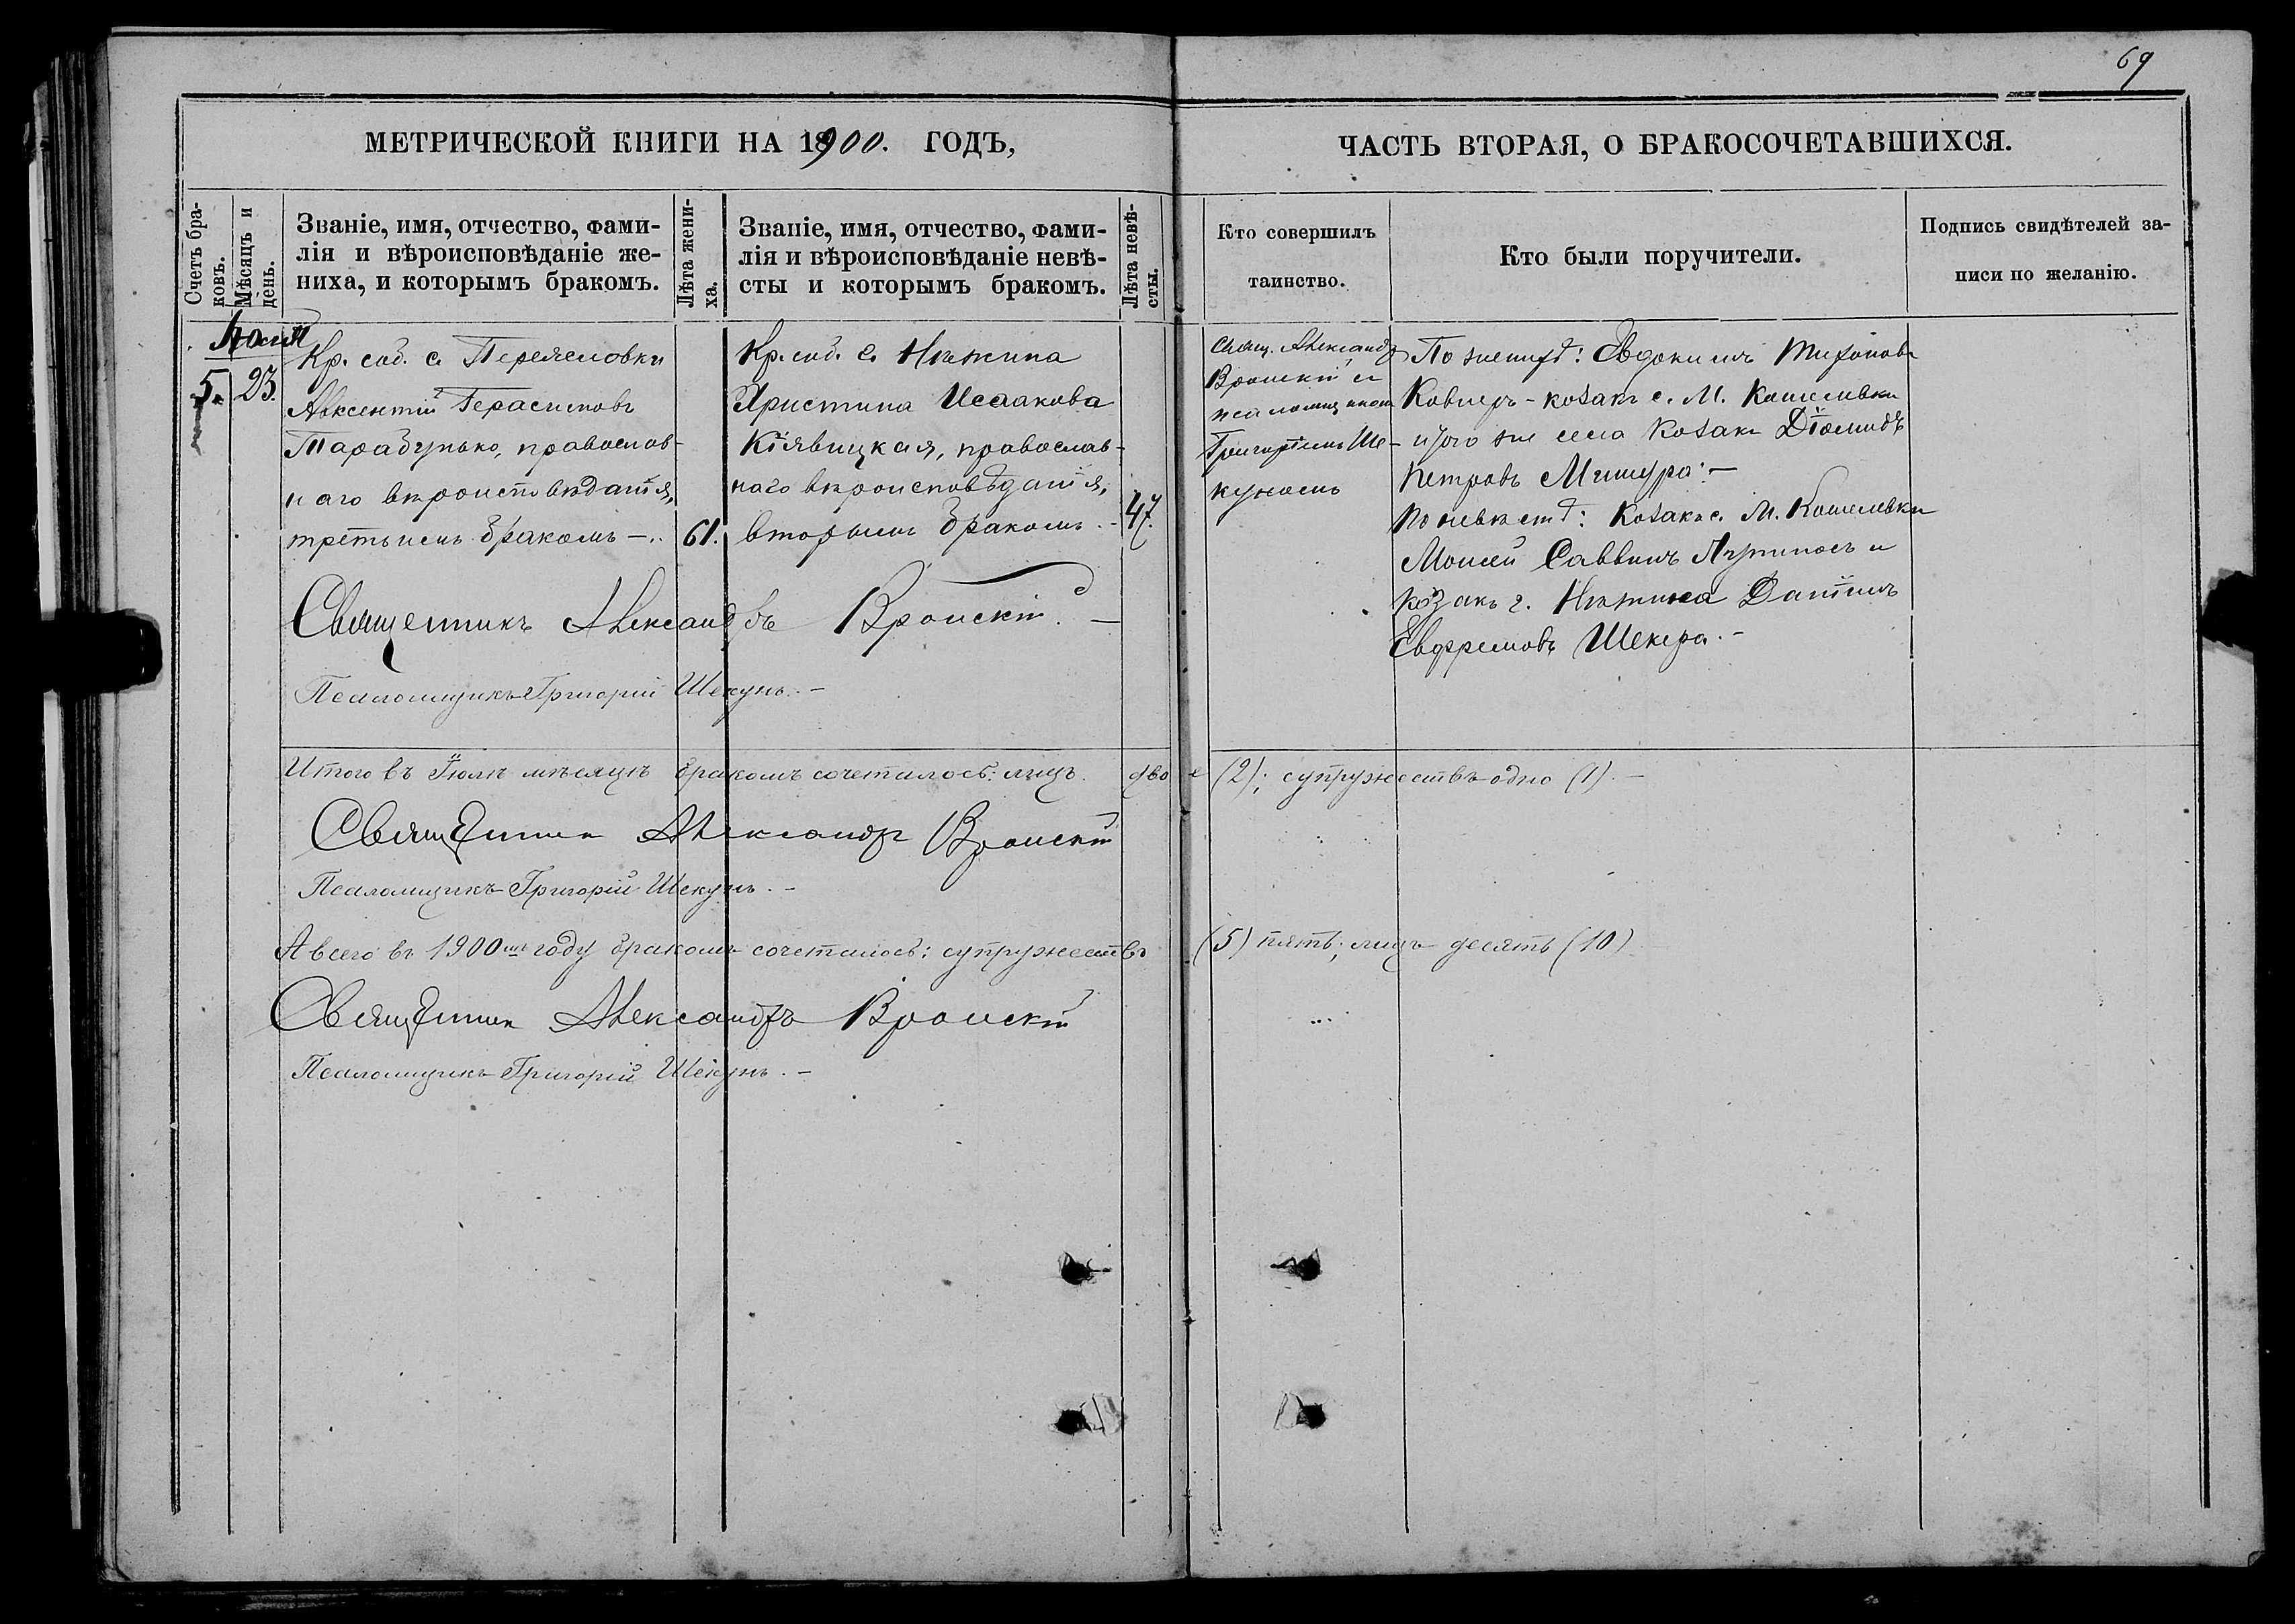 69
МЕТРИЧЕСКОЙ КНИГИ НА 1900. ГОДЪ,
ЧАСТЬ ВТОРАЯ, О БРАКОСОЧЕТАВШИХСЯ.
Счетъ бра-
ковъ.
Мѣсяцъ и
день.
Званіе, имя, отчество, фами-
лія и вѣроисповѣданіе же-
ниха, и которымъ бракомъ.
Лѣта жени-
ха.
Званіе, имя, отчество, фами-
лія и вѣроисповѣданіе невѣ-
сты и которымъ бракомъ.
Лѣта невѣ-
сты.
Кто совершилъ
таинство.
Кто были поручители.
Подпись свидѣтелей за-
писи по желанію.
5.
23.
Кр. соб. с.
Авксентій Герасимовъ
Тарабунько, православ-
наго вѣроисповѣданія,
третьимъ бракомъ —
61.
Кр. соб. с. Нѣжина
Христина Исаакова
православ-
наго вѣроисповѣданія,
вторымъ бракомъ. -
47.
Свящ. Александръ
Вронскій и
псаломщикомъ
Григоріемъ Ше-
куномъ
По женихѣ: Евдокимъ
Ковнеръ - козакъ с. М. Кошелевки
и того же села козакъ Діомидъ
Петровъ Мишура: -
По невѣстѣ: Козакъ с. М. Кошелевки
Моисей Саввинъ и
козакъ г. Нѣжина Даніилъ
Евфремовъ Шекера. -
Священникъ Александръ Вронскій. —
Псаломщикъ Григорій Шекунъ. -
Итого въ Іюлѣ мѣсяцѣ бракомъ сочеталось: лицъ двое (2); супружествъ одно (1). —
Священник Александръ Вронскій
Псаломщикъ Григорій Шекунъ. -
А всего въ 1900мъ году бракомъ сочеталось: супружествъ (5) пять; лицъ десять (10)
Священник Александръ Вронскій
Псаломщикъ Григорій Шекунъ. -